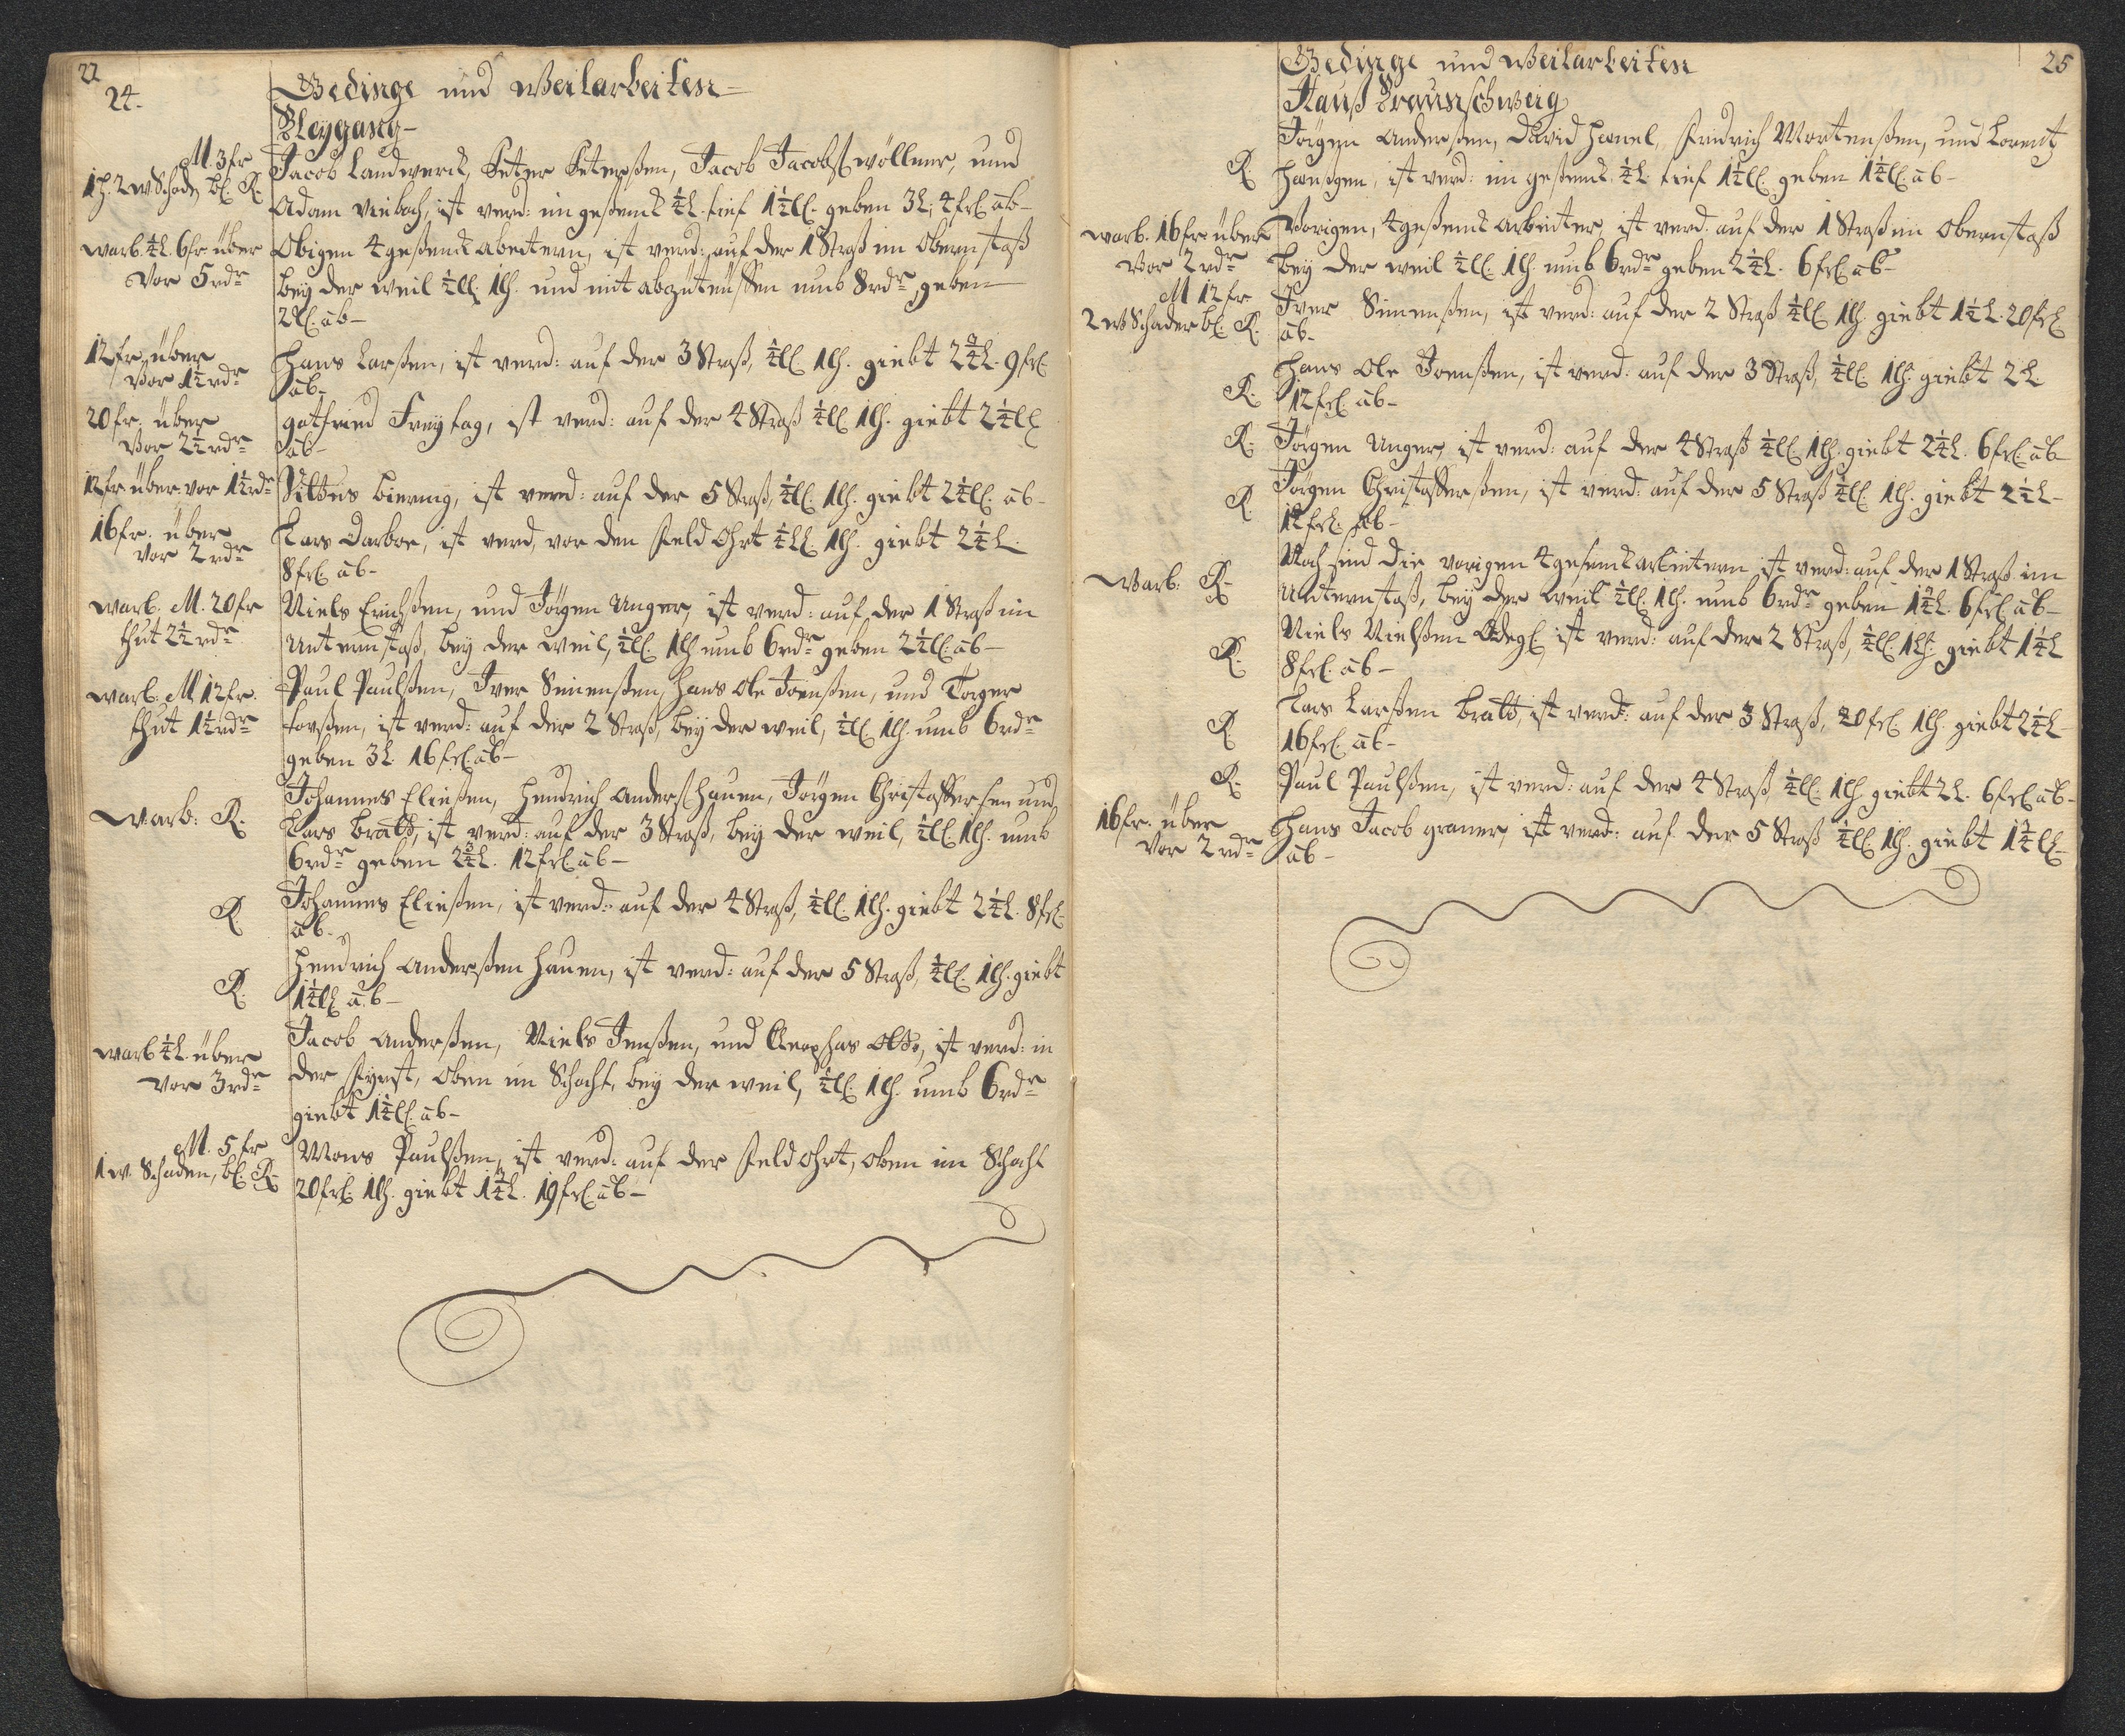 22
24.
Gedinge und Weilarbeiten
Bleygang
M. 3 fr
1 lh. 2 w Schade, bl. R.
Jacob Landwerck, Peter Peterßen, Jacob Jacobs wöllner, und
Adam Viebach, ist verd: im geßenck ¼ L. tief 1½ Ll. geben 3 L. 4 frl ab
warb. ¼ L. 6 fr über
vor 5 rdr
Obigen 4 geßenck abeitern, ist verd: auf der 1 Straß im Obernstoß
bey der Weil ¼ Ll. 1 lh. und mit abzuteüffen umb 8 rdr geben
2 Ll. ab
12 fr über
vor 1½ rdr
Hans Larßen, ist verd: auf der 3 Straß, ¼ Ll. 1 lh. giebt 2¾ L. 9 frl.
ab
20 fr. über
vor 2½ rdr
gotfried Freytag, ist verd: auf der 4 Straß ¼ Ll. 1 lh. giebt 2¼ Ll
ab
12 fr über vor 1½ rdr
Biering, ist verd: auf der 5 Straß, ¼ Ll. 1 lh. giebt 2¼ Ll. ab
16 fr. über
vor 2 rdr
Lars Darboe, ist verd, vor den Feld Ohrt ¼ Ll. 1 lh. giebt 2¼ L.
8 frl. ab
warb. M. 20 fr
thut 2½ rdr
Niels Erichßen, und Jörgen Unger, ist verd: auf der 1 Straß im
Unternstoß, bey der Weil, ¼ Ll. 1 lh umb 6 rdr geben 2¼ Ll. ab
warb. M 12 fr.
thut 1½ rdr
Paul Paulßen, Iver Simenßen, Hans Ole Joenßen, und Torger
Torßen, ist verd: auf der 2 Straß, bey der weil, ¼ Ll. 1 lh. umb 6 rdr
geben 3 L. 16 frl. ab
Warb: R.
Johannes Eließen, Hendrich Anders Hauen, Jörgen Christoffersen und
Lars Bratt, ist verd: auf der 3 Straß, bey der weil, ¼ Ll. 1 lh. umb
6 rdr geben 2¾ L. 12 frl ab
R.
Johannes Eließen, ist verd: auf der 4 Straß, ¼ Ll. 1 lh. giebt 2¼ L. 8 frl.
ab
R.
Hendrich Anderßen Hauen, ist verd: auf der 5 Straß, ¼ Ll. 1 lh. giebt
1¼ Ll ab
warb ¼ L. über
vor 3 rdr
Jacob Anderßen, Niels Jenßen, und Cleophas Olß, ist verd: in
der Fyrst, oben im Schacht, bey der weil, ¼ Ll. 1 lh. umb 6 rdr
giebt 1¼ Ll. ab
M. 5 fr
1 w. Schaden, bl. R.
Mons Paulßen, ist verd: auf der Feld Ohrt, oben im Schacht
20 frl. 1 lh. giebt 1¾ L. 19 frl. ab
25
Gedinge und Weilarbeiten
Hauß Braunschweig
R.
Jörgen Anderßen, David Hanel, Fridrich Mortenßen, und Lorentz
Hanßgen, ist verd: im geßenck ¼ L tief 1½ Ll. geben 1¼ Ll. ab
warb. 16 fr über
vor 2 rdr
Vorigen, 4 geßenck Arbeiter, ist verd: auf der 1 Straß im Obernstoß
bey der weil ¼ Ll. 1 lh. umb 6 rdr geben 2¼ L. 6 frl. ab
M 12 fr
2 w Schaden bl. R.
Iver Simenßen, ist verd: auf der 2 Straß ¼ Ll. 1 lh. giebt 1½ L. 20 frl
ab.
R.
Hans Ole Joenßen, ist verd: auf der 3 Straß, ¼ Ll. 1 lh. giebt 2 L
12 frl. ab
R.
Jörgen Unger, ist verd: auf der 4 Straß ¼ Ll. 1 lh. giebt 2¼ L. 6 frl. ab
R.
Jörgen Christofferßen, ist verd: auf der 5 Straß ¼ Ll. 1 lh. giebt 2½ L
12 frl. ab
Warb: R.
Noch sind die vorigen 4 gesenckarbeitern ist verd: auf der 1 Straß im
Unternstoß, bey der weil ¼ Ll. 1 lh. umb 6 rdr geben 1¾ L. 6 frl. ab
R.
Niels Nielßen, ist verd: auf der 2 Straß, ¼ Ll. 1 lh. giebt 1¼ L
8 frl. ab
R
Lars Larßen Bratt, ist verd: auf der 3 Straß, 20 frl 1 lh. giebt 2¼ L
16 frl. ab
R.
Paul Paulßen, ist verd: auf der 4 Straß, ¼ Ll. 1 lh giebt 2 L. 6 frl ab
16 fr. über
vor 2 rdr
Hans Jacob graner, ist verd: auf der 5 Straß ¼ Ll. 1 lh. giebt 1¾ Ll
ab